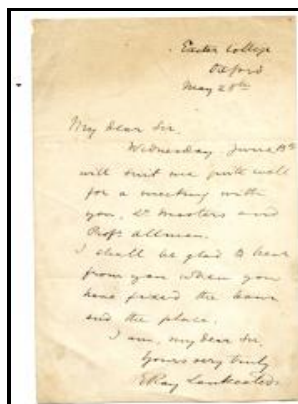 Exeter College
Oxford
May 28th
My dear Sir,
Wednesday June 13th
will suit me quite well
for a meeting with
you, Dr Masters and
Profr. Allman.
I shall be glad to hear
from you when you
have fixed the hour
and the place.
I am, my dear Sir,
Yours very truly
E Ray Lankester.